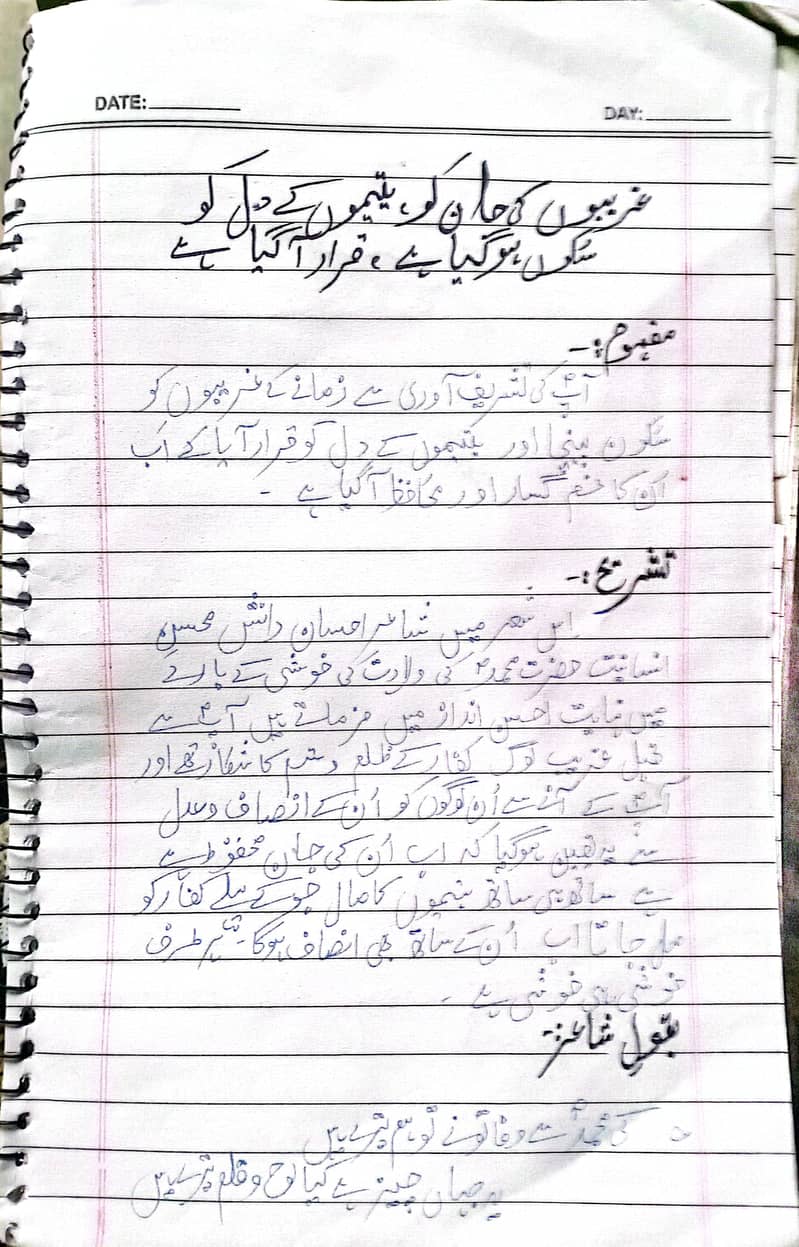 DATE:
DAY:
غریبوں کی جان کو، یتیموں کے دل کو
سکوں ہوگیا ہے، قرار آگیا ہے
مفہوم:-
آپؐ کی تشریف آوری سے زمانے کے غریبوں کو
سکون پہنچا اور یتیموں کے دل کو قرار آیا کے اب
اُن کا غم گسار اور محافظ آگیا ہے -
تشریح:-
اِس شعر میں شاعر احسان دانش محسنِ
انسانیت حضرت محمدؐ کی ولادت کی خوشی کے بارے
میں نہایت احسن انداز میں فرماتے ہیں آپؐ سے
قبل غریب لوگ کفار کے ظلم و ستم کا شکار تھے اور
آپؐ کے آنے سے اُن لوگوں کو اُن کے انصاف و عدل
سے یہ یقین ہوگیا کہ اب اُن کی جان محفوظ ہے
ساتھ ہی ساتھ یتیموں کا مال جو کے پہلے کفار کو
مل جاتا اب اُن کے ساتھ بھی انصاف ہوگا - ہر طرف
خوشی ہی خوشی ہے -
بقولِ شاعر:-
کی محمدؐ سے وفا تونے تو ہم تیرے ہیں
یہ جہاں چیز ہے کیا لوح و قلم تیرے ہیں